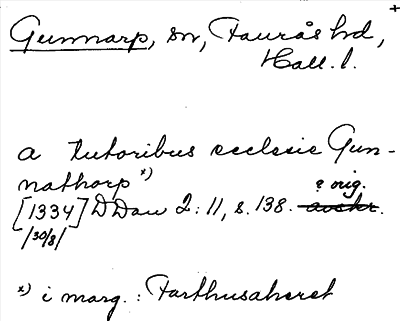 +
Gunnarp, sn, Faurås hd,
Hall. l.
a tutoribus ecclesie Gun-
nathorp *)
? orig.
[1334] DDan 2:11, s. 138. avskr.
/30/8/
*) i marg.: Farthusaheret